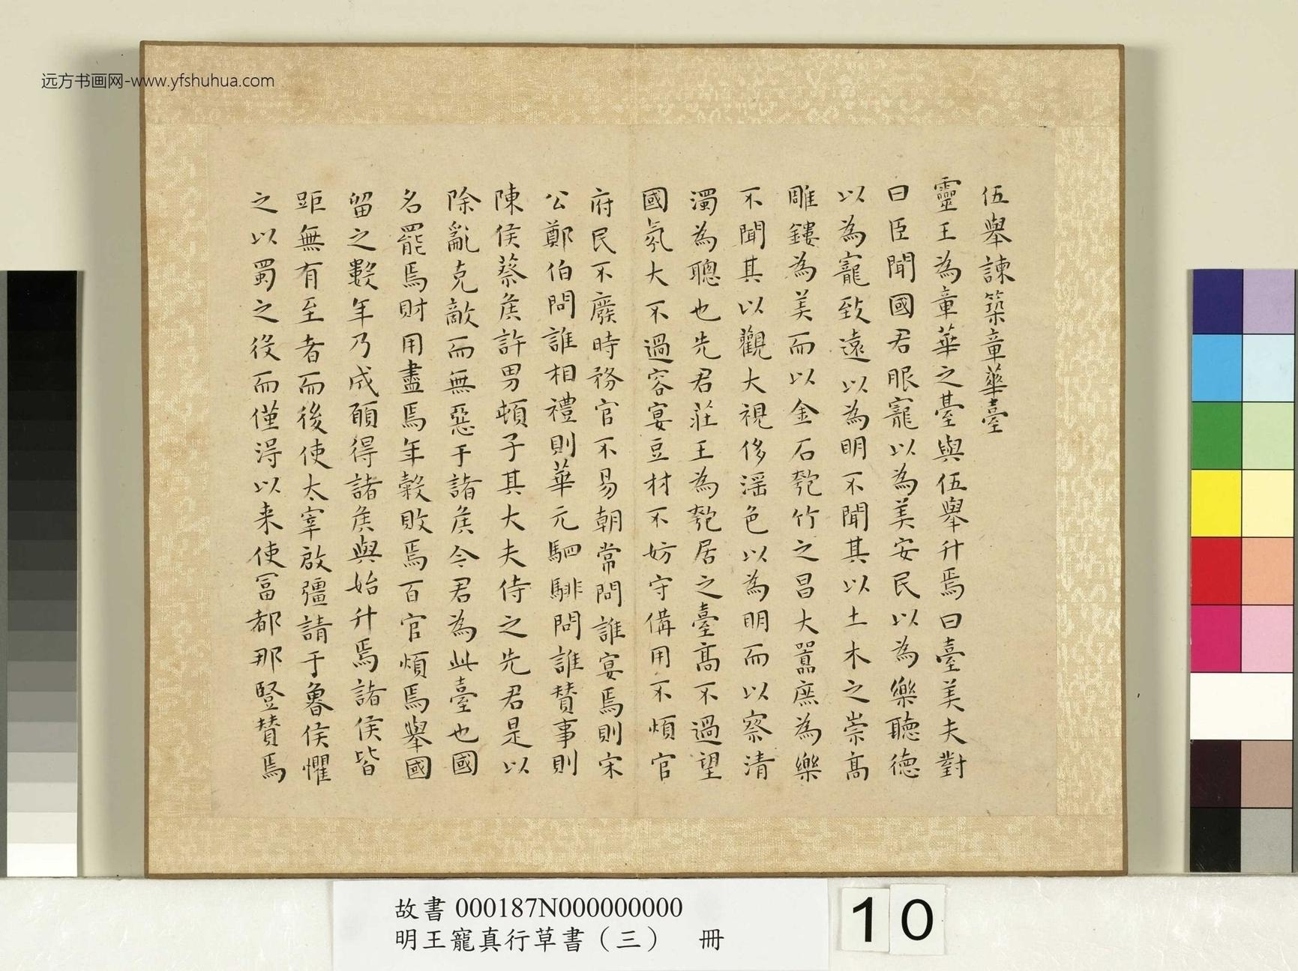 远方书画网-www.yfshuhua.com
伍舉諫築章華臺
靈王為章華之臺與伍舉升焉曰臺美夫對
曰臣聞國君服寵以為美安民以為樂聽德
以為寵致遠以為明不聞其以土木之崇高
雕鏤為美而以金石匏竹之昌大囂庶為樂
不聞其以觀大視侈滛色以為明而以察清
濁為聰也先君莊王為匏居之臺高不過望
國氛大不過容宴豆材不妨守備用不煩官
府民不廢時務官不易朝常問誰宴焉則宋
公鄭伯問誰相禮則華元駟騑問誰賛事則
陳侯蔡矦許男頓子其大夫侍之先君是以
除亂克敵而無惡于諸矦今君為此臺也國
名罷焉財用盡焉年穀敗焉百官煩焉舉國
留之數年乃成願得諸矦與始升焉諸侯皆
距無有至者而後使太宰啟彊請于魯侯懼
之以蜀之役而僅得以来使冨都那豎賛焉
故書 000187N000000000
明王寵真行草書（三） 冊
10